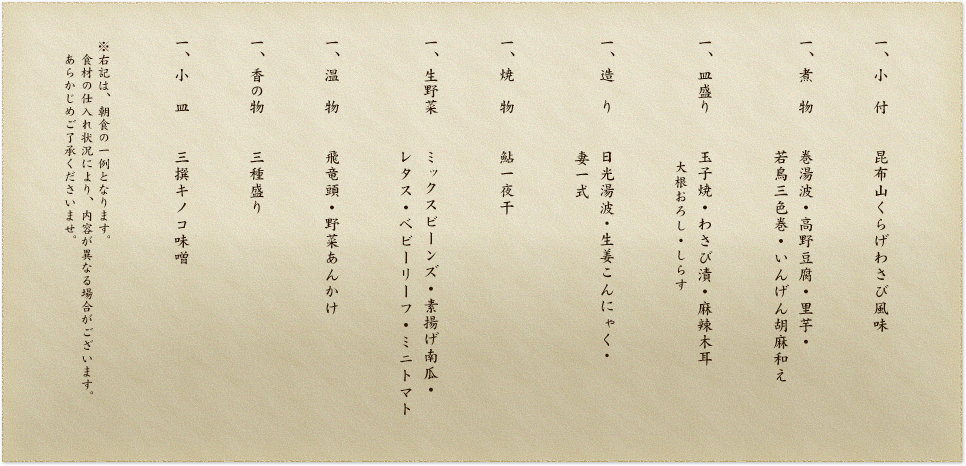 一、小 付 昆布山くらげわさび風味
一、煮 物 巻湯波・高野豆腐・里芋・
若鳥三色巻・いんげん胡麻和え
一、皿盛り 玉子焼・わさび漬・麻辣木耳
大根おろし・しらす
一、造 り 日光湯波・生姜こんにゃく・
妻一式
一、焼 物 鮎一夜干
一、生野菜 ミックスビーンズ・素揚げ南瓜・
レタス・ベビーリーフ・ミニトマト
一、温 物 飛竜頭・野菜あんかけ
一、香の物 三種盛り
一、小 皿 三撰キノコ味噌
※右記は、朝食の一例となります。
食材の仕入れ状況により、内容が異なる場合がございます。
あらかじめご了承くださいませ。